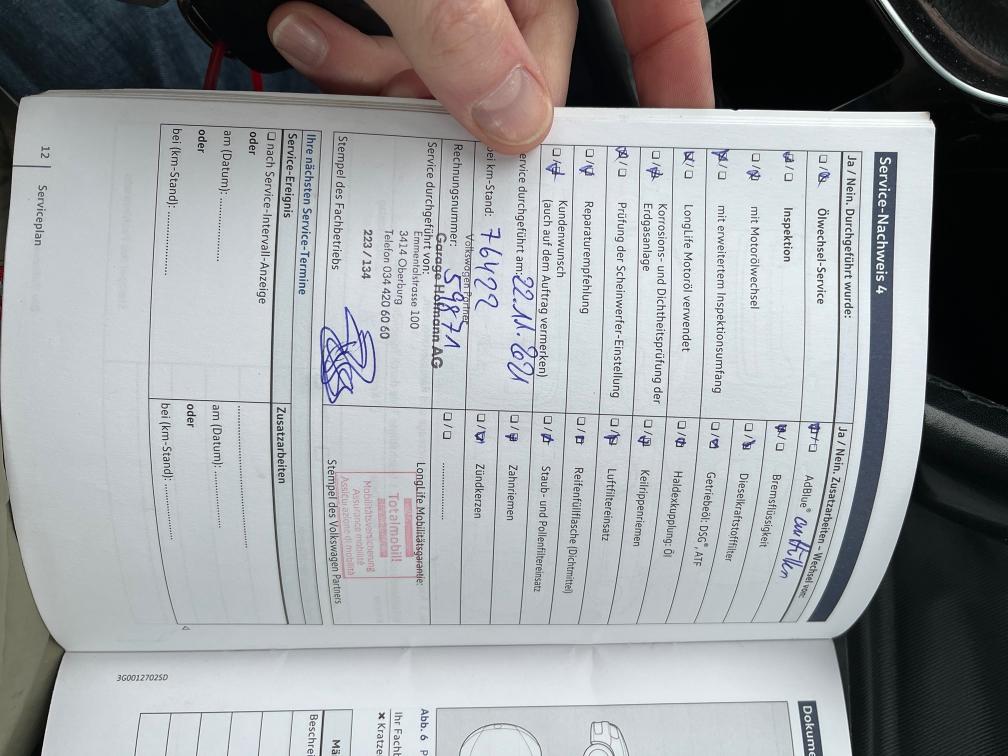 Service-Nachweis 4
Ja / Nein. Durchgeführt wurde:
☐ / ☒ Ölwechsel-Service
☒ / ☐ Inspektion
☐ / ☒ mit Motorölwechsel
☒ / ☐ mit erweitertem Inspektionsumfang
☒ / ☐ LongLife Motoröl verwendet
☐ / ☒ Korrosions- und Dichtheitsprüfung der
Erdgasanlage
☒ / ☐ Prüfung der Scheinwerfer-Einstellung
☐ / ☒ Reparaturempfehlung
☐ / ☒ Kundenwunsch
(auch auf dem Auftrag vermerken)
ervice durchgeführt am: 22.11.2021
ei km-Stand: 76422
Rechnungsnummer: 59871
Service durchgeführt von:
Volkswagen Partner
Garage Hofmann AG
Emmentalstrasse 100
3414 Oberburg
Telefon 034 420 60 60
223 / 134
Stempel des Fachbetriebs
Ja / Nein. Zusatzarbeiten – Wechsel von:
☒ / ☐ AdBlue® auffüllen
☒ / ☐ Bremsflüssigkeit
☐ / ☒ Dieselkraftstofffilter
☐ / ☒ Getriebeöl: DSG®, ATF
☐ / ☒ Haldexkupplung: Öl
☐ / ☒ Keilrippenriemen
☐ / ☒ Luftfiltereinsatz
☐ / ☒ Reifenfüllflasche (Dichtmittel)
☐ / ☒ Staub- und Pollenfiltereinsatz
☐ / ☒ Zahnriemen
☐ / ☒ Zündkerzen
☐ / ☐ ....................
LongLife Mobilitätsgarantie:
Totalmobil!
Mobilitätsversicherung
Assurance mobilité
Assicurazione di mobilità
Stempel des Volkswagen Partners
Ihre nächsten Service-Termine
Service-Ereignis
☐ nach Service-Intervall-Anzeige
oder
am (Datum): ....................
oder
bei (km-Stand): ....................
Zusatzarbeiten
....................
am (Datum): ....................
oder
bei (km-Stand): ....................
12 Serviceplan
3G0012702SD
Dokume
Abb. 6 P
Ihr Fachb
✖ Kratze
Mä
Beschre